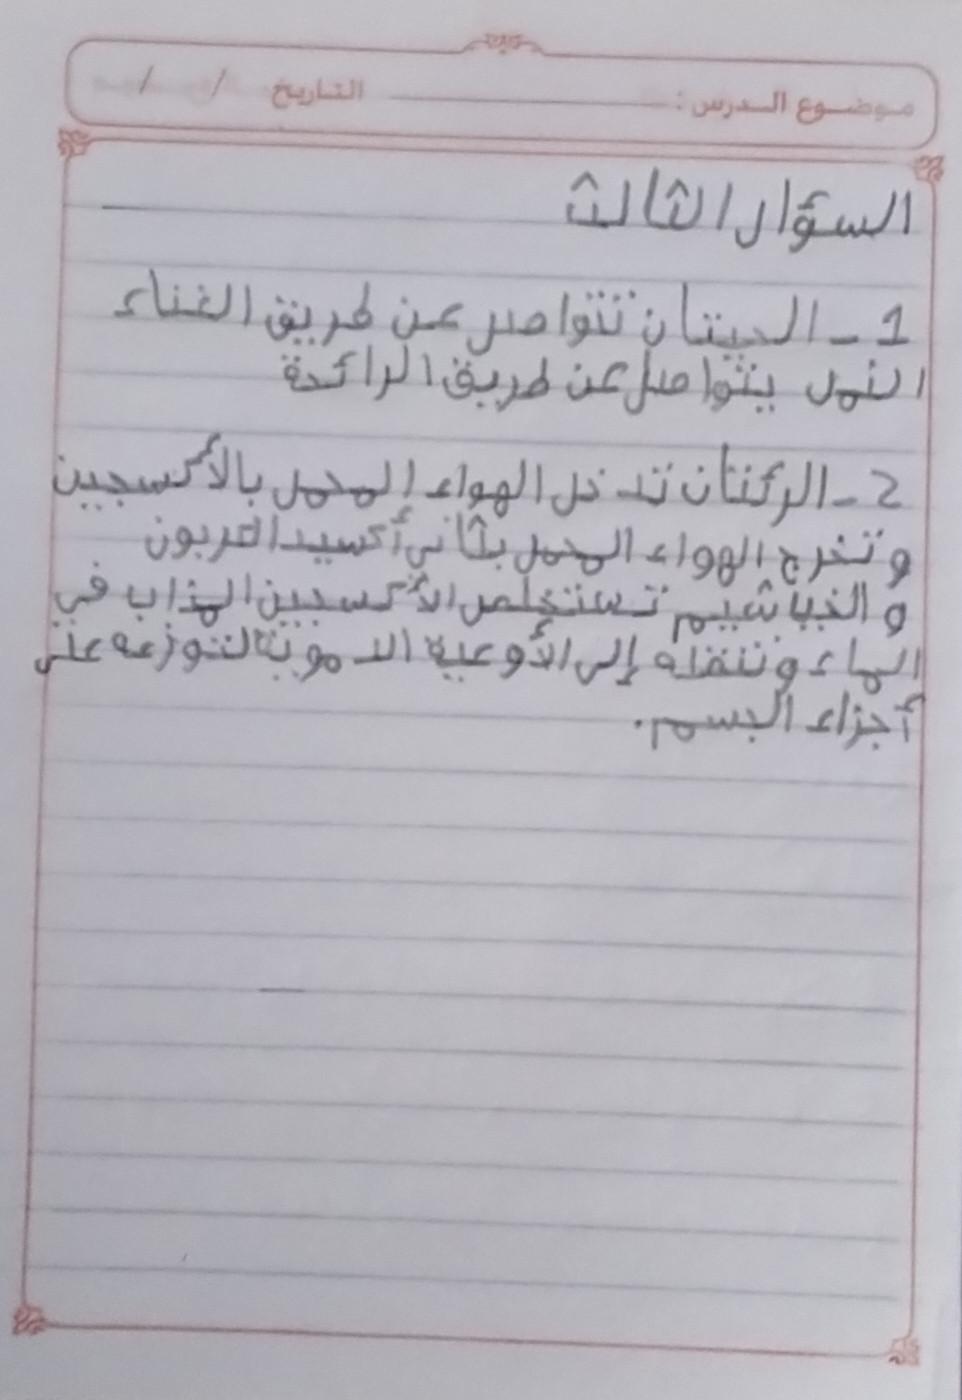 موضوع الدرس : التاريخ / /
السؤال الثالث
1 - الحيتان تتواصل عن طريق الغناء
النمل يتواصل عن طريق الرائحة
2 - الرئتان تدخل الهواء المحمل بالأكسجين
وتخرج الهواء المحمل بثاني أكسيد الكربون
والخياشيم تستخلص الأكسجين المذاب في
الماء وتنقله إلى الأوعية الدموية لتوزعه على
أجزاء الجسم.